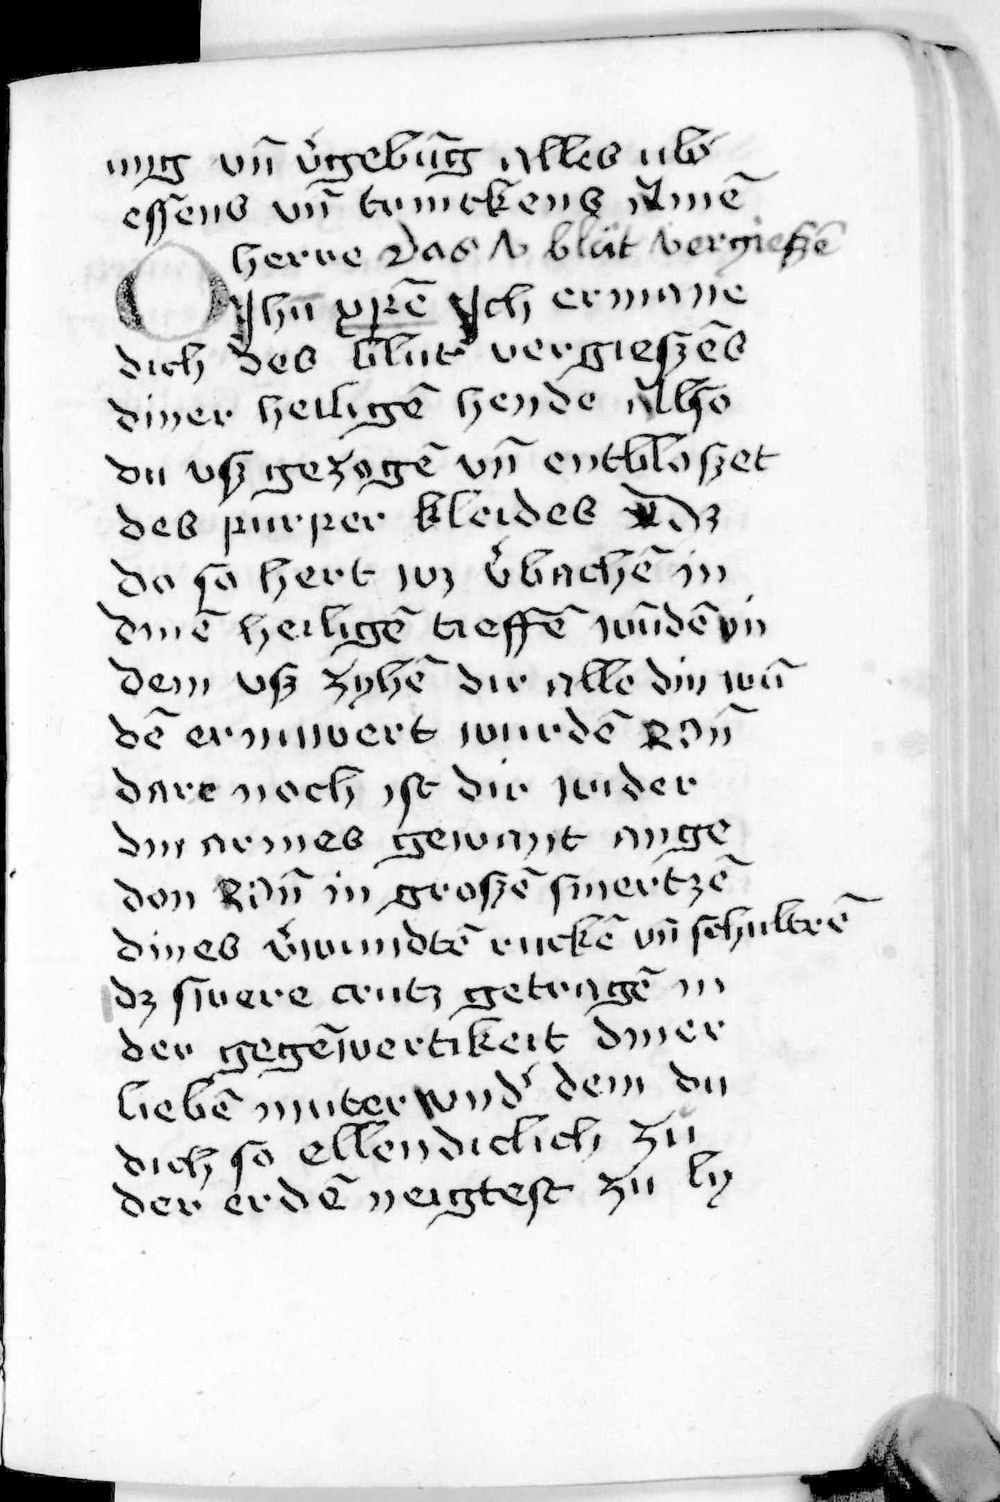 ung vn̄ v̓gebūg alles ub̓
essens vn̄ trinckens Amē
O herre das v blůt vergieszē
Jhū xp̄ē Jch ermane
dich des blůt vergieszēs
diner heiligē hende Also
du usz gezogē vn̄ entbloszet
des purper kleides dz
do so hert wz v̓bachē in
dinē heiligē tieffē wūdē vn̄
dem usz zyhē dir alle din wū
dē ernuwert wurdē Vn̄
dare noch ist dir wider
din armes gewant ange
don Vn̄ in groszē smertzē
dines v̓wundtē ruckē vn̄ schultrē
dz swere crutz getragē in
der gegēwertikeit diner
liebē muter vnd̓ dem du
dich so ellendiclich zu
der erdē neigtest zu ly